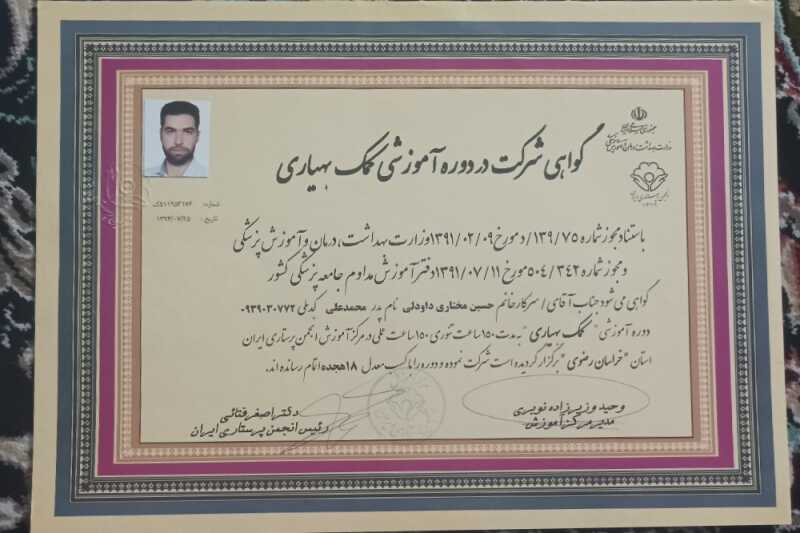 جمهوری اسلامی ایران
وزارت بهداشت، درمان و آموزش پزشکی
انجمن پرستاری ایران
گواهی شرکت در دوره آموزشی کمک بهیاری
شماره:
تاریخ:
باستناد مجوز شماره ۱۳۹/۷۵/د مورخ ۱۳۹۱/۰۲/۰۹ وزارت بهداشت، درمان و آموزش پزشکی
و مجوز شماره ۵۰۴/۳۴۲ مورخ ۱۳۹۱/۰۷/۱۱ دفتر آموزش مداوم جامعه پزشکی کشور
گواهی می شود جناب آقای / سرکار خانم حسین مختاری داودلی نام پدر محمدعلی کدملی ۰۹۳۹۰۳۰۷۷۲
دوره آموزشی " کمک بهیاری " به مدت ۱۵۰ ساعت تئوری ۱۵۰ ساعت عملی در مرکز آموزش انجمن پرستاری ایران
استان "خراسان رضوی" برگزار گردیده است شرکت نموده و دوره را با کسب معدل ۱۸ هجده اتمام رسانده اند.
وحید وزیرزاده نویری
مدیر مرکز آموزش
دکتر اصغر فتائی
رئیس انجمن پرستاری ایران